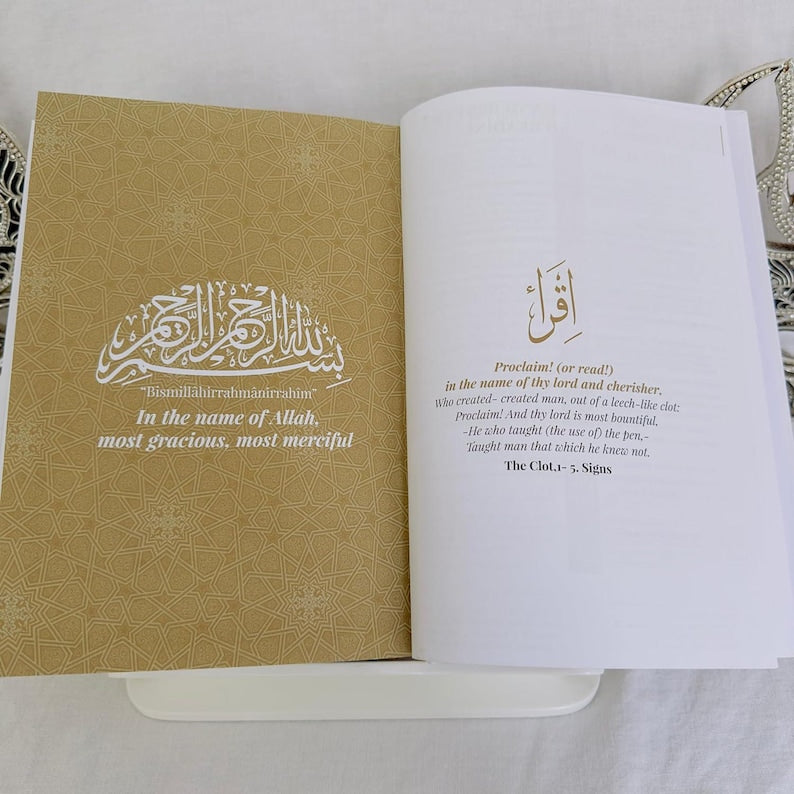 بِسْمِ اللهِ الرَّحْمٰنِ الرَّحِيمِ
“Bismillâhirrahmânirrahim”
In the name of Allah,
most gracious, most merciful
اِقْرَأْ
Proclaim! (or read!)
in the name of thy lord and cherisher,
Who created- created man, out of a leech-like clot:
Proclaim! And thy lord is most bountiful,
-He who taught (the use of) the pen,-
Taught man that which he knew not.
The Clot,1- 5. Signs